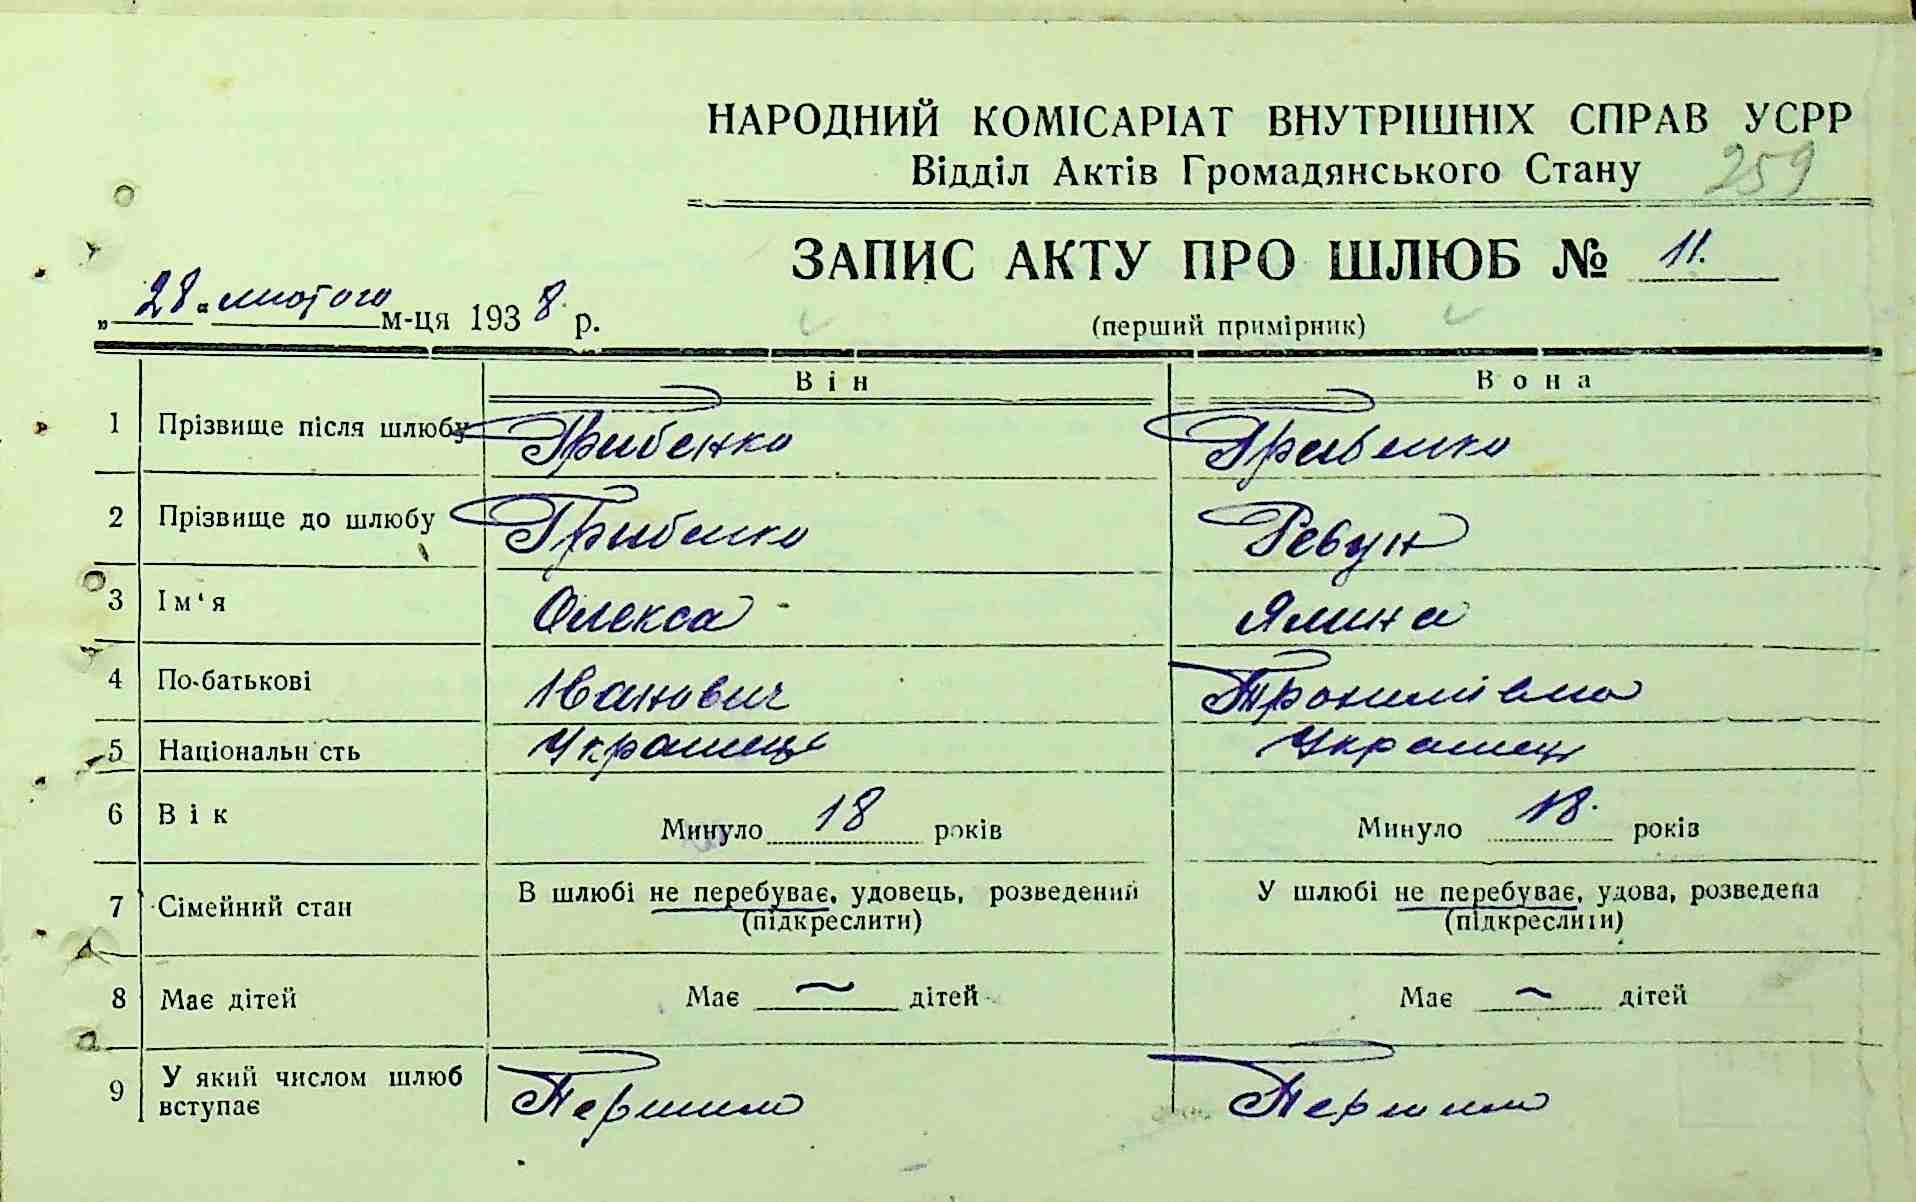 НАРОДНИЙ КОМІСАРІАТ ВНУТРІШНІХ СПРАВ УСРР
Відділ Актів Громадянського Стану 259
ЗАПИС АКТУ ПРО ШЛЮБ № 11.
„28“ лютого м-ця 1938 р.
(перший примірник)
Він Вона
1 Прізвище після шлюбу Грибенко Грибенко
2 Прізвище до шлюбу Грибенко Ревун
3 Ім'я Олекса Ялина
4 По-батькові Іванович
5 Національн сть Українець Українець
6 Вік Минуло 18 років Минуло 18. років
7 Сімейний стан В шлюбі не перебуває, удовець, розведений У шлюбі не перебуває, удова, розведена
(підкреслити) (підкреслити)
8 Має дітей Має ~ дітей Має ~ дітей
9 У який числом шлюб вступає Першим Першим